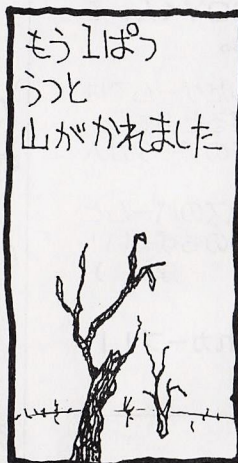 もう1ぱつ
うつと
山がかれました